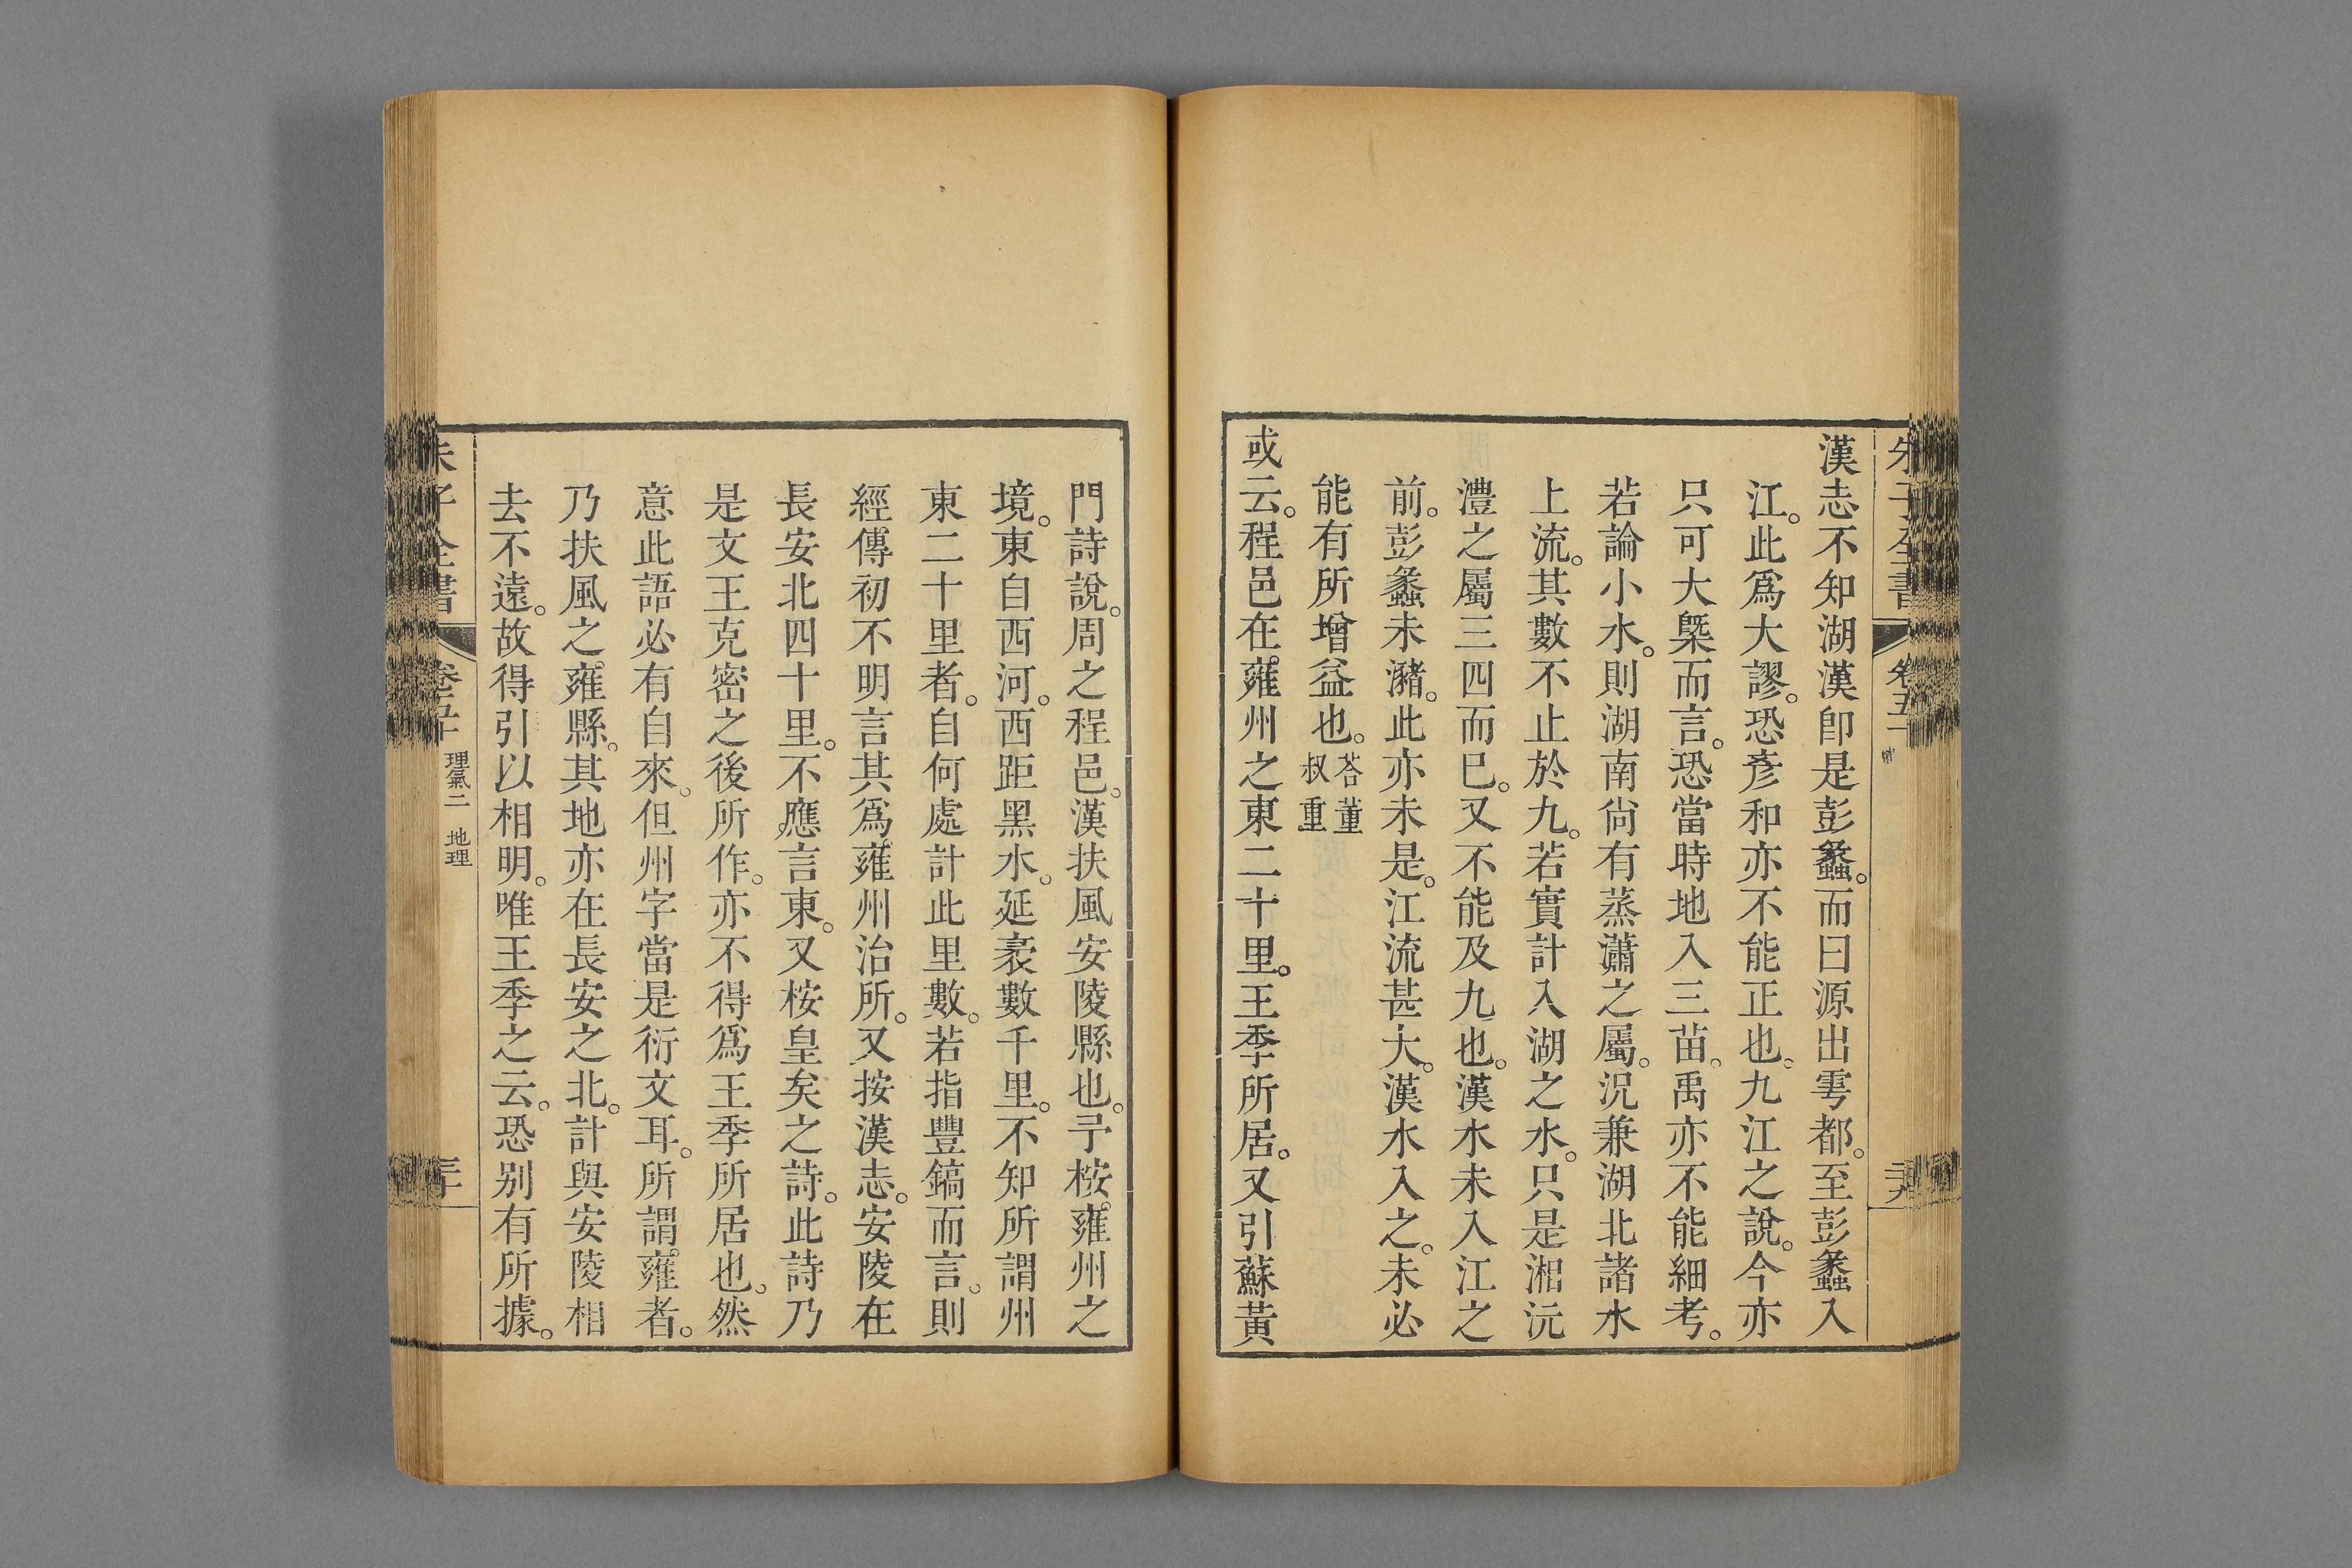 漢志不知湖漢卽是彭蠡。而曰源出雩都。至彭蠡入
江。此爲大謬。恐彥和亦不能正也。九江之說。今亦
只可大槩而言。恐當時地入三苗。禹亦不能細考。
若論小水。則湖南尙有蒸瀟之屬。況兼湖北諸水
上流。其數不止於九。若實計入湖之水。只是湘沅
澧之屬三四而已。又不能及九也。漢水未入江之
前。彭蠡未瀦。此亦未是。江流甚大。漢水入之。未必
能有所增益也。答董叔重
或云。程邑在雍州之東二十里。王季所居。又引蘇黃
門詩說。周之程邑。漢扶風安陵縣也。予桉。雍州之
境。東自西河。西距黑水。延袤數千里。不知所謂州
東二十里者。自何處計此里數。若指豐鎬而言。則
經傳初不明言其爲雍州治所。又按漢志。安陵在
長安北四十里。不應言東。又桉皇矣之詩。此詩乃
是文王克密之後所作。亦不得爲王季所居也。然
意此語必有自來。但州字當是衍文耳。所謂雍者。
乃扶風之雍縣。其地亦在長安之北。計與安陵相
去不遠。故得引以相明。唯王季之云。恐别有所據。
朱子全書
卷五十
理氣二 地理
三十